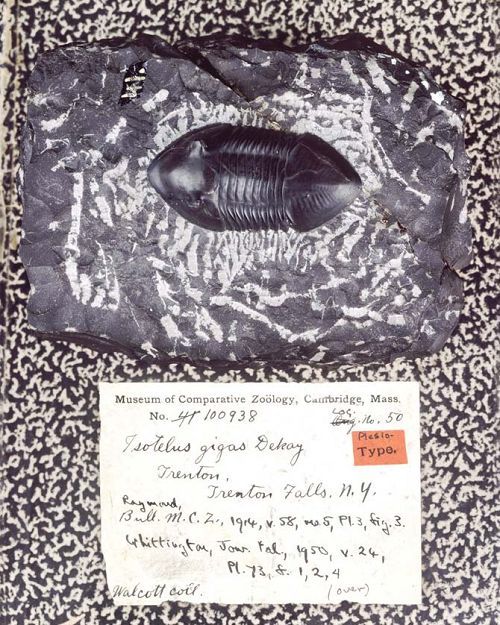 Museum of Comparative Zoölogy, Cambridge, Mass.
No. 4T 100938 Loc. No. 50
Isotelus gigas Dekay
Plesio-
Type.
Trenton,
Trenton Falls. N.Y.
Raymond,
Bull. M.C.Z., 1914, v. 58, no 5, Pl. 3, fig. 3.
Whittington, Jour. Pal., 1950, v. 24,
Pl. 73, f. 1, 2, 4
Walcott coll. (over)